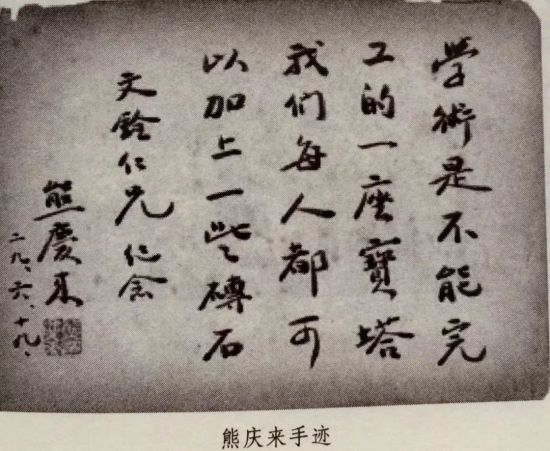 學術是不能完
工的一座寶塔
我们每人都可
以加上一些磚石
文銓仁兄 纪念
熊慶來
二九、六、十九、
熊庆来手迹